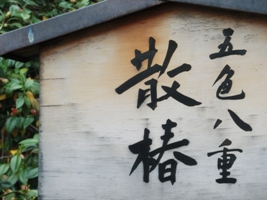 五色八重
散椿